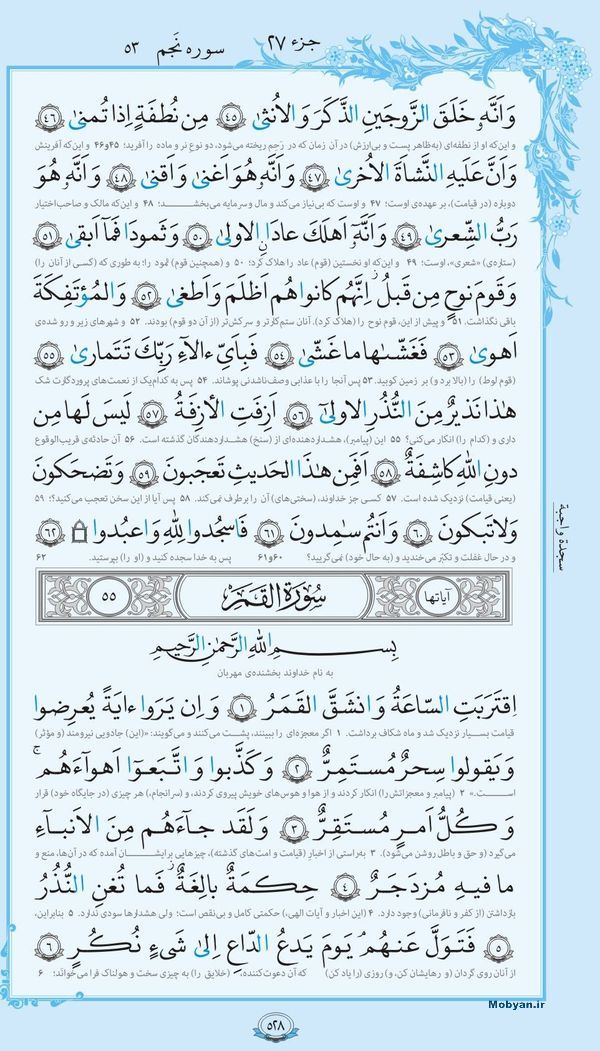 جزء ۲۷ سوره نجم ۵۳
وَاَنَّهُۥ خَلَقَ الزَّوجَینِ الذَّکَرَ وَ الاُنثیٰ ﴿۴۵﴾ مِن نُطفَةٍ اِذا تُمنیٰ ﴿۴۶﴾
و این‌که او از نطفه‌ای (به‌ظاهر پست و بی‌ارزش) در آن زمان که در رَحِم ریخته می‌شود، دو نوع نر و ماده را آفرید؛ ۴۵و۴۶ و این‌که آفرینش
وَ اَنَّ عَلَیهِ النَّشاَةَ الاُخریٰ ﴿۴۷﴾ وَ اَنَّهُۥ هُوَ اَغنیٰ وَ اَقنیٰ ﴿۴۸﴾ وَ اَنَّهُۥ هُوَ
دوباره (در قیامت)، بر عهده‌ی اوست؛ ۴۷ و اوست که بی‌نیاز می‌کند و مال و سرمایه می‌بخشد؛ ۴۸ و این‌که مالک و صاحب‌اختیار
رَبُّ الشِّعریٰ ﴿۴۹﴾ وَ اَنَّهُۥٓ اَهلَکَ عادًا الاولیٰ ﴿۵۰﴾ وَ ثَمودَا فَمآ اَبقیٰ ﴿۵۱﴾
(ستاره‌ی) «شعری»، اوست؛ ۴۹ و این‌که او نخستین (قوم) عاد را هلاک کرد؛ ۵۰ و (همچنین قوم) ثمود را؛ به طوری که (کسی از آنان را)
وَ قَومَ نوحٍ مِن قَبلُ اِنَّهُم کانوا هُم اَظلَمَ وَ اَطغیٰ ﴿۵۲﴾ وَ المُؤتَفِکَةَ
باقی نگذاشت. ۵۱ و پیش از این، قوم نوح را (هلاک کرد). آنان ستم‌کارتر و سرکش‌تر (از آن دو قوم) بودند. ۵۲ و شهرهای زیر و رو شده‌ی
اَهویٰ ﴿۵۳﴾ فَغَشّىٰها ما غَشّیٰ ﴿۵۴﴾ فَبِاَیِّ ءالآءِ رَبِّکَ تَتَماریٰ ﴿۵۵﴾
(قوم لوط) را (بالا برد و) بر زمین کوبید. ۵۳ پس آنجا را با عذابی وصف‌ناشدنی پوشاند. ۵۴ پس به کدام‌یک از نعمت‌های پروردگارت شک
هٰذا نَذیرٌ مِنَ النُّذُرِ الاولیٰٓ ﴿۵۶﴾ اَزِفَتِ الآزِفَةُ ﴿۵۷﴾ لَیسَ لَها مِن
داری و (کدام را) انکار می‌کنی؟ ۵۵ این (پیامبر)، هشداردهنده‌ای از (سنخ) هشداردهندگان گذشته است. ۵۶ آن حادثه‌ی قریب‌الوقوع
دونِ اللّٰهِ کاشِفَةٌ ﴿۵۸﴾ اَفَمِن هٰذَا الحَدیثِ تَعجَبونَ ﴿۵۹﴾ وَ تَضحَکونَ
(یعنی قیامت) نزدیک شده است. ۵۷ کسی جز خداوند، (سختی‌های) آن را برطرف نمی‌کند. ۵۸ پس آیا از این سخن تعجب می‌کنید؟! ۵۹
وَ لا تَبکونَ ﴿۶۰﴾ وَ اَنتُم سٰمِدونَ ﴿۶۱﴾ فَاسجُدوا لِلّٰهِ وَ اعبُدوا ۩ ﴿۶۲﴾
و در حال غفلت و تکبّر می‌خندید و (به حال خود) نمی‌گریید؟ ۶۰و۶۱ پس به خدا سجده کنید و (او را) بپرستید. ۶۲
سجدة واجبة
آیاتها سُورَةُ القَمَر ۵۵
بِسمِ اللّٰهِ الرَّحمٰنِ الرَّحیم
به نام خداوند بخشنده‌ی مهربان
اِقتَرَبَتِ السّاعَةُ وَ انشَقَّ القَمَرُ ﴿۱﴾ وَ اِن یَرَوا ءایَةً یُعرِضوا
قیامت بسیار نزدیک شد و ماه شکاف برداشت. ۱ اگر معجزه‌ای را ببینند، پشت می‌کنند و می‌گویند: «(این) جادویی نیرومند (و مؤثر)
وَ یَقولوا سِحرٌ مُستَمِرٌّ ﴿۲﴾ وَ کَذَّبوا وَ اتَّبَعوٓا اَهوآءَهُم ۚ
است.» ۲ (پیامبر و معجزاتش را) انکار کردند و از هوا و هوس‌های خویش پیروی کردند، و (سرانجام،) هر چیزی (در جایگاه خود) قرار
وَ کُلُّ اَمرٍ مُستَقِرٌّ ﴿۳﴾ وَ لَقَد جآءَهُم مِنَ الاَنبآءِ
می‌گیرد (و حق و باطل روشن می‌شود). ۳ به‌راستی از اخبار (قیامت و امت‌های گذشته)، چیزهایی برایشان آمده که در آن‌ها، منع و
ما فیهِ مُزدَجَرٌ ﴿۴﴾ حِکمَةٌ بالِغَةٌ فَما تُغنِ النُّذُرُ
بازداشتن (از کفر و نافرمانی) وجود دارد. ۴ (این اخبار و آیات الهی،) حکمتی کامل و بی‌نقص است؛ ولی هشدارها سودی ندارد. ۵ بنابراین،
﴿۵﴾ فَتَوَلَّ عَنهُم یَومَ یَدعُ الدّاعِ اِلیٰ شَیءٍ نُکُرٍ ﴿۶﴾
از آنان روی گردان (و رهایشان کن، و) روزی (را یاد کن) که آن دعوت‌کننده، (خلایق را) به چیزی سخت و هولناک فرا می‌خواند؛ ۶
Mobyan.ir
۵۲۸